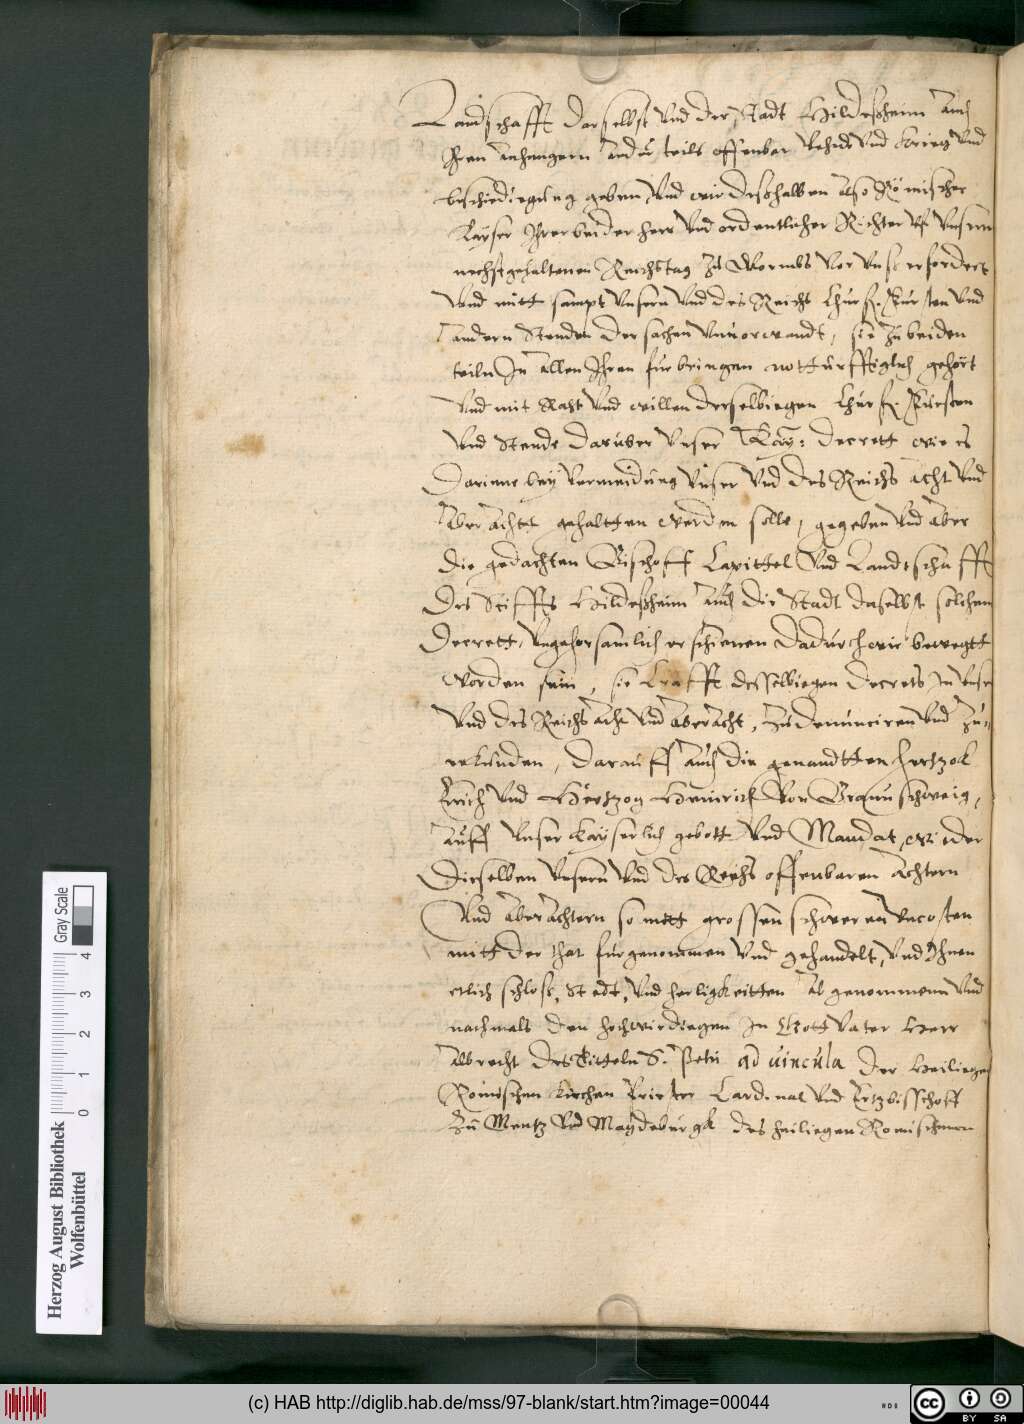 Landschafft daselbst vnd der Stadt Hildeßheim auch
Ihren anhengern ander teils offenbar Vehde vnd Krieg vnd
beschedigung geben, vnd wir deßhalben also Römischer
Kayser Ihrer beider herr vnd ordentlicher Richter vf vnserm
nechstgehaltenen Reichstag zu Wormbs vor vns erfordert
vnd mitt sampt vnsern vnd des Reichs Churf. Fursten vnd
andern Stenden der sachen vnuorwandt, sie zu beiden
teiln In allen Ihren furbringen notturfftiglich gehört
vnd mit Raht vnd willen derselbiegen Churf. Fürsten
vnd Stende daruber vnser Kay: decrett wie es
darinne bey vermeidung vnser vnd des Reichs acht vnd
aber acht gehaltten werden solle, gegeben vnd aber
die gedachten Bischoff Capittel vnd Landtschafft
des Stiffts Hildeßheim auch die Stadt daselbst solchem
Decrett, vngehorsamlich erschienen dadurch wir bewegtt
worden sein, sie Krafft desselbiegen decrets In vnser
vnd des Reichs acht vnd aberacht, zu denunciren vnd zu-
erkunden, darauff auch die genandtten hertzok
Erich vnd Hertzog Heinrich von Braunschweig,
auff vnser Kayserlich gebott vnd Mandat, wieder
dieselben vnsern vnd des Reichs offenbaren achtern
vnd aberachtern so mitt grossen schweren vncosten
mitt der that furgenommen vnd gehandelt, vnd Ihnen
etlich schloß, Stedt, vnd herligkeitten ab genommenn vnd
nachmals den hochwirdiegen In Gott Vater Herr
Albrecht des Tittels S. Petri ad uincula der Heiliegen
Römischen Kirchen Priester Cardinal vnd Ertzbisschoff
zu Mentz vnd Maydeburgk des heiliegen Romischenn
Herzog August Bibliothek
Wolfenbüttel
0 1 2 3 4
Gray Scale
(c) HAB http://diglib.hab.de/mss/97-blank/start.htm?image=00044
cc BY SA